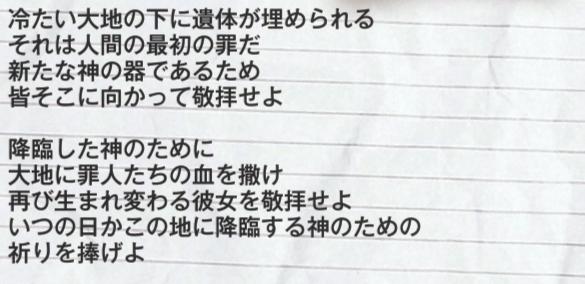 冷たい大地の下に遺体が埋められる
それは人間の最初の罪だ
新たな神の器であるため
皆そこに向かって敬拝せよ
降臨した神のために
大地に罪人たちの血を撒け
再び生まれ変わる彼女を敬拝せよ
いつの日かこの地に降臨する神のための
祈りを捧げよ